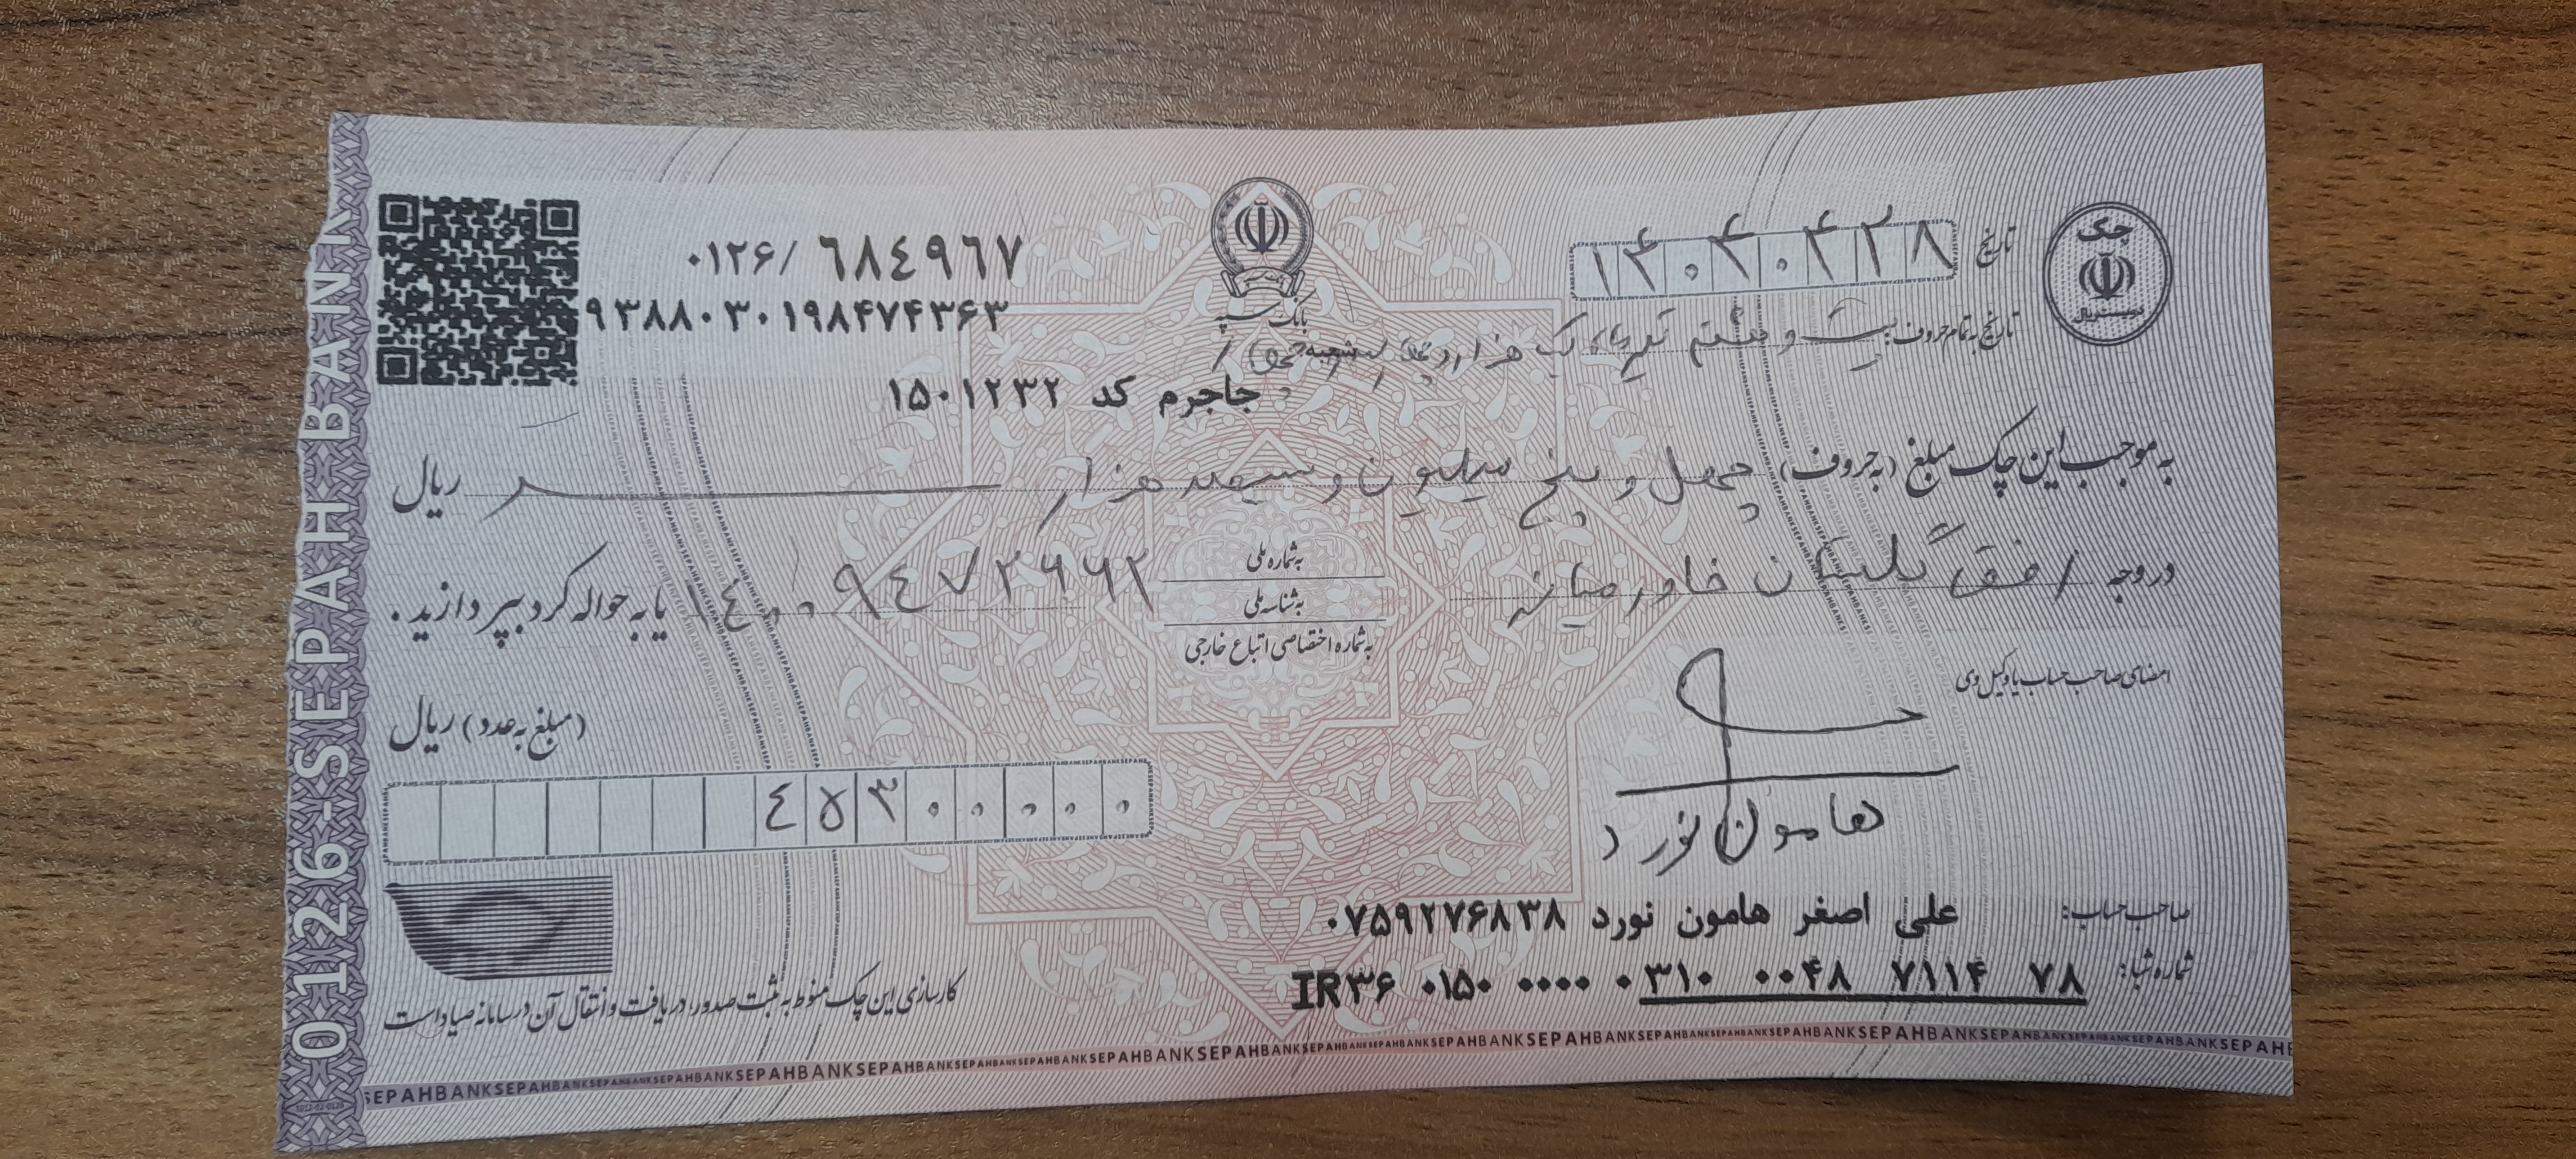 چک
دویست ریال
تاریخ ۱۴۰۴۰۴۲۸
تاریخ به تمام حروف: بیست و هشتم تیرماه یک هزار و
بانک سپه
شعبه:
جاجرم کد ۱۵۰۱۲۳۲
۰۱۲۶/ ۶۸٤۹۶۷
۹۳۸۸۰۳۰۱۹۸۴۷۴۳۶۳
به موجب این چک مبلغ (به حروف) چهل و پنج میلیون و سیصد هزار ریال
در وجه افق تابان خاورمیانه
به شماره ملی
به شناسه ملی
به شماره اختصاصی اتباع خارجی
۱٤۰۰۹٤۷۲۶۶۲ یا به حواله کرد بپردازید.
امضای صاحب حساب یا وکیل وی
هامون نورد
(مبلغ به عدد) ریال
٤۵۳۰۰۰۰۰
صاحب حساب: علی اصغر هامون نورد ۰۷۵۹۲۷۶۸۳۸
شماره شبا: IR۳۶ ۰۱۵۰ ۰۰۰۰ ۰۳۱۰ ۰۰۴۸ ۷۱۱۴ ۷۸
کارسازی این چک منوط به ثبت صدور، دریافت و انتقال آن در سامانه صیاد است
0126-SEPAH BANK
SEPAHBANKSEPAHBANKSEPAHBANKSEPAHBANKSEPAHBANKSEPAHBANK